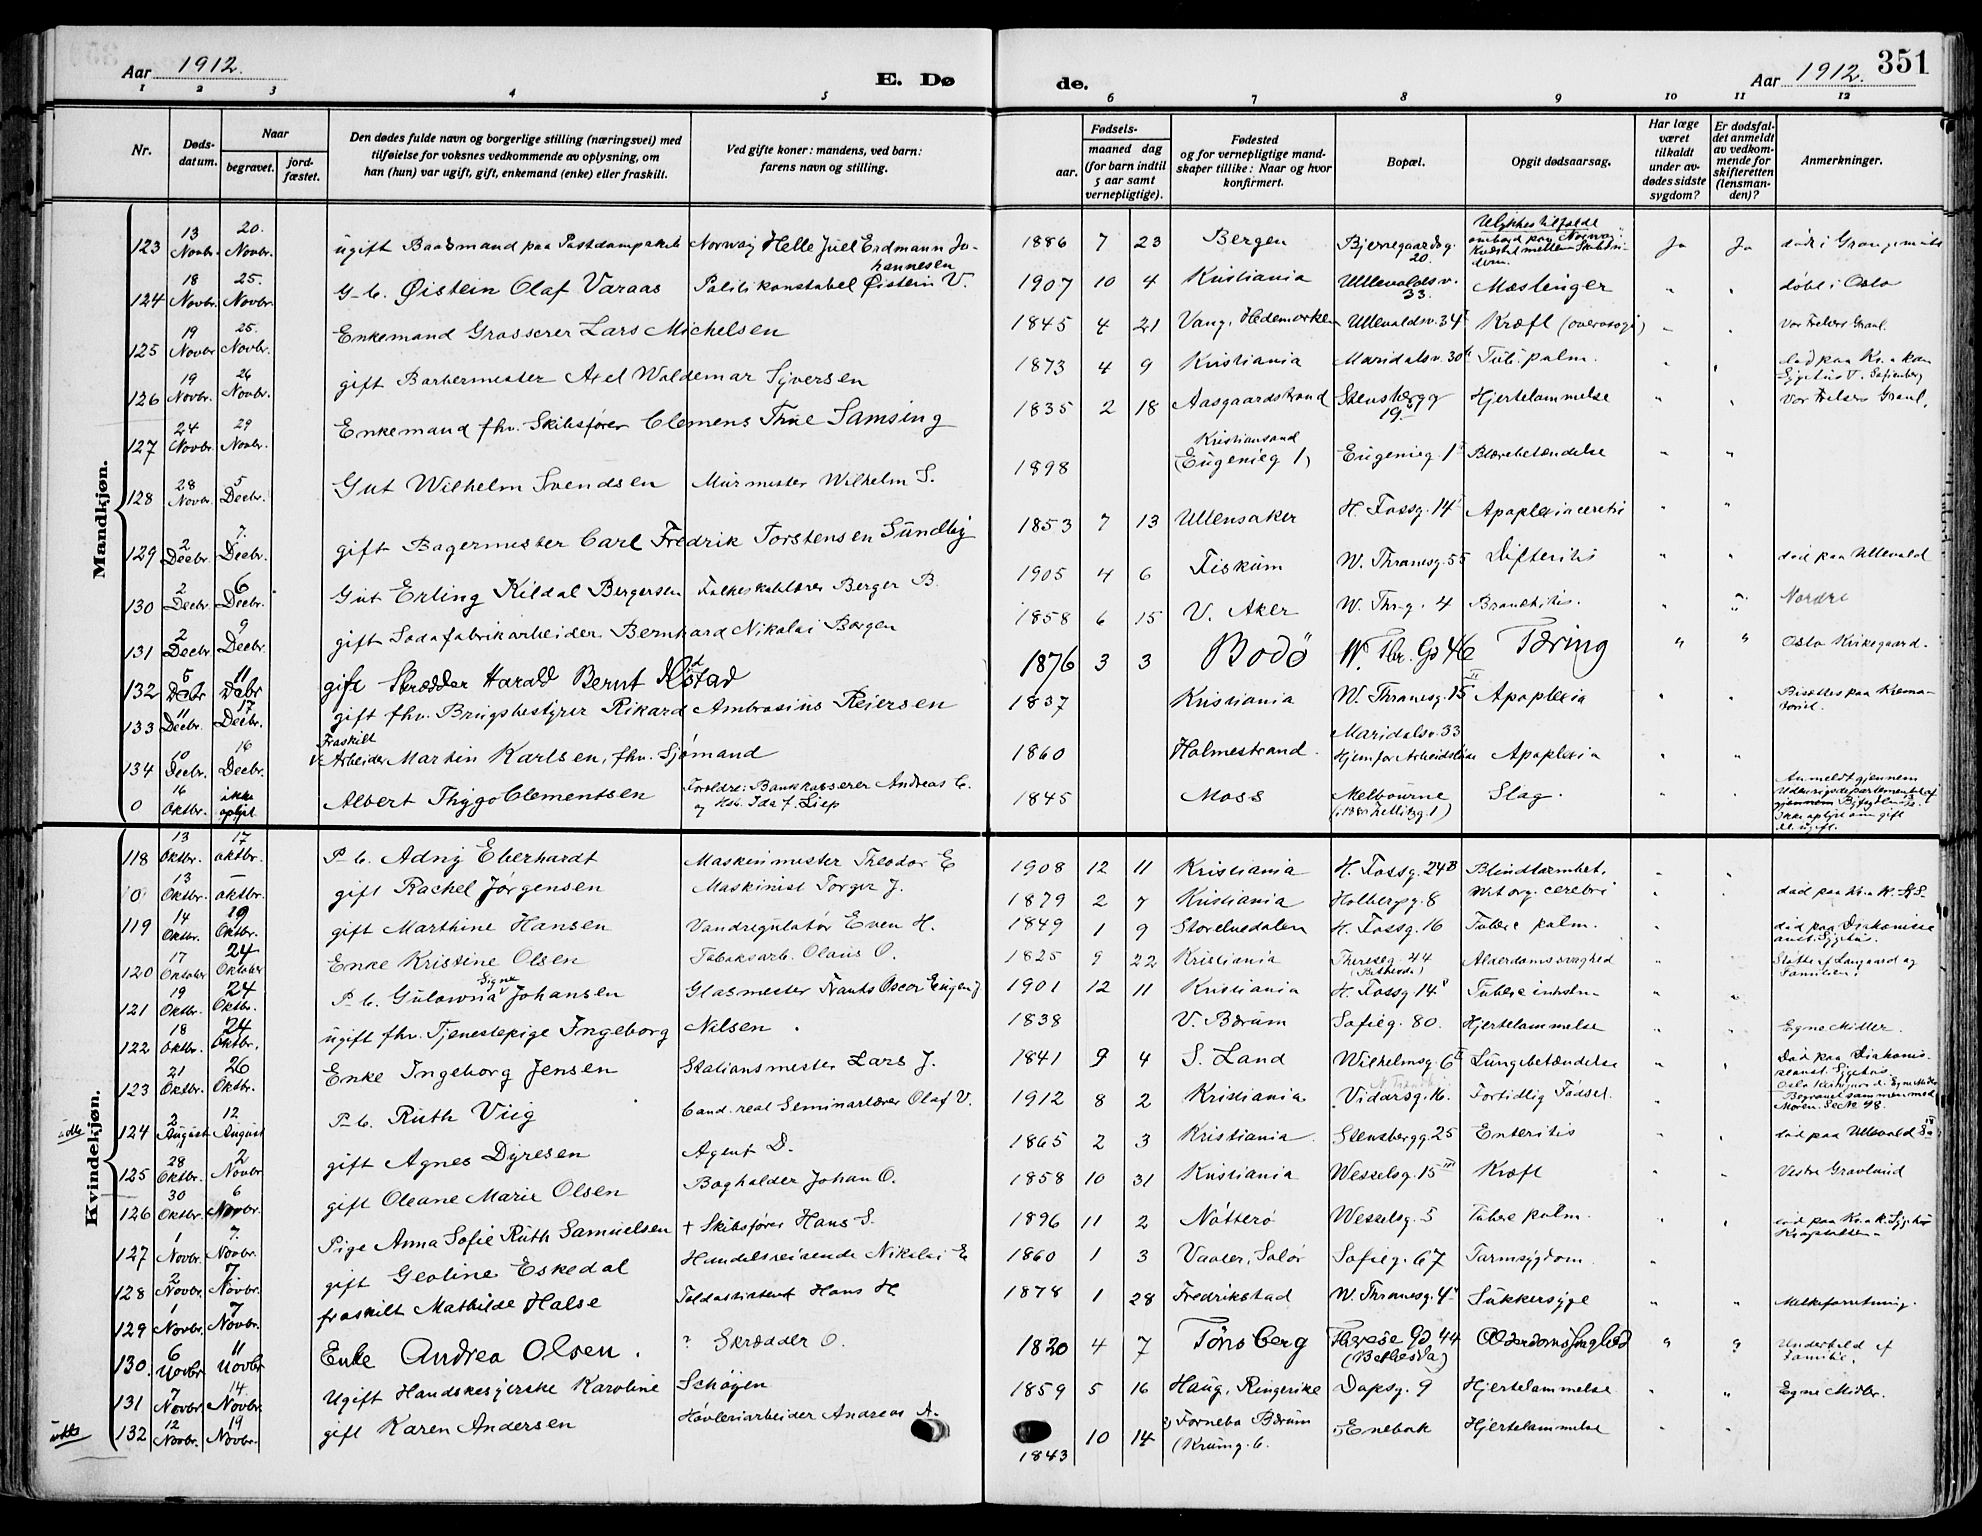 Aar 1912.
E. Dø
de.
Aar 1912.
351
1 2 3 4 5 6 7 8 9 10 11 12
Nr.
Døds-
datum.
Naar
begravet.
jord-
fæstet.
Den dødes fulde navn og borgerlige stilling (næringsvei) med
tilføielse for voksnes vedkommende av oplysning, om
han (hun) var ugift, gift, enkemand (enke) eller fraskilt.
Ved gifte koner: mandens, ved barn:
farens navn og stilling.
Fødsels-
aar.
maaned dag
(for barn indtil
5 aar samt
vernepligtige).
Fødested
og for vernepligtige mand-
skaper tillike: Naar og hvor
konfirmert.
Bopæl.
Opgit dødsaarsag.
Har læge
været
tilkaldt
under av-
dødes sidste
sygdom?
Er dødsfal-
det anmeldt
av vedkom-
mende for
skifteretten
(lensman-
den)?
Anmerkninger.
Mandkjøn.
123 13 Novbr. 20. Novbr. ugift Baadsmand paa Postdampskib Norway Helle Juel Erdmann Jo-
hannesen 1886 7 23 Bergen Bjerregaardsg. 20. Ulykkestilfælde ombord paa "Norway" Ja Ja
124 18 Novbr. 25. Novbr. G-b. Øistein Olaf Varaas Politikonstabel Øistein V. 1907 10 4 Kristiania Ullevaldsv. 33. Mæslinger " " døbt i Oslo
125 19 Novbr. 25. Novbr. Enkemand Grosserer Lars Michelsen 1845 4 21 Vang, Hedemarken Ullevaldsv. 34 Kræft " " Vor Frelsers Gravl.
126 19 Novbr. 26 Novbr. gift Barbermester Axel Waldemar Syversen 1873 4 9 Kristiania Maridalsv. 30 Tub. pulm. " "
127 24 Novbr. 29 Novbr. Enkemand fhv. Skibsfører Clemens Thue Samsing 1835 2 18 Aasgaardstrand Stensbergg 19 Hjertelammelse " " Vor Frelsers Gravl.
128 28 Novbr. 5 Decbr. Gut Wilhelm Svendsen Murmester Wilhelm S. 1898 Kristiansand (Eugenieg 1) Eugenieg. 1 Blærebetændelse " "
129 2 Decbr. 7. Decbr. gift Bagermester Carl Fredrik Torstensen Sundby 1853 7 13 Ullensaker H. Fossg. 14 Apoplexia cerebri " "
130 2 Decbr. 6 Decbr. Gut Erling Kildal Bergersen Folkeskolelærer Berger B. 1905 4 6 Fiskum W. Thranesg. 55 Difteritis " " død paa Ullevald
131 2 Decbr. 9 Decbr. gift Sodafabrikarbeider Bernhard Nikolai Borgen 1858 6 15 V. Aker W. Thr-g. 4 Bronchitis. " " Nordre
132 5 Decbr 11 Decbr gift Skrædder Harald Bernt 1876 3 3 Bodö W. Thr. Gd 46 Tæring " " Oslo Kirkegaard.
133 11 Decbr. 17 Decbr. gift fhv. Brugsbestyrer Rikard Ambrosius Reiersen 1837 Kristiania W. Thranesg. 15 II Apoplexia " "
134 10 Decbr. 16 Decbr. Fraskilt Arbeider Martin Karlsen, fhv. Sjømand 1860 Holmestrand. Maridalsv. 33 Hjem for Arbeidsløse Apoplexia " "
0 16 Oktbr. ikke oplyst Albert Thygo Clementsen Forældre: Bankkasserer Andreas C. 1845 Moss Melbourne Slag. " " Anmeldt gjennem Utenrigsdepartementet
Kvindekjøn.
118 13 Oktbr. 17 oktbr. P-b. Adny Eberhardt Maskinmester Theodor E 1908 12 11 Kristiania H. Fossg. 24B Blindtarmbet. " "
0 13 Oktbr. - oktbr. gift Rachel Jørgensen Maskinist Torger J. 1879 2 7 Kristiania Holbergsg. 8 " "
119 14 Oktbr. 19 Oktbr. gift Marthine Hansen Vandregulatør Even H. 1849 1 9 Storelvedalen H. Fossg. 16 Tuberc pulm. "
120 17 Oktober 24 Oktober Enke Kristine Olsen Tobaksarb. Olaus O. 1825 9 22 Kristiania Theresesg. 44 (Bethesda) Alderdomssvaghed " "
121 19 Oktbr. 24 Oktbr. P-b. Gulowna Signe Johansen Glasmester Frants Oscar Eugen J 1901 12 11 Kristiania H. Fossg 14 " "
122 18 Oktbr. 24 Oktbr. ugift fhv. Tjenestepige Ingeborg Nilsen. 1838 V. Bærum Sofieg. 80. Hjertelammelse " " Egne Midler.
123 21 Oktbr. 26 Oktbr. Enke Ingeborg Jensen Stationsmester Lars J. 1841 9 4 S. Land Wilhelmsg. 6 II Lungebetændelse "
124 2 August 12 August P-b. Ruth Viig Cand. real Seminarlærer Olaf V. 1912 8 2 Kristiania Vidarsg. 16. Fortidlig Fødsel. "
125 28 Oktbr. 2 Novbr gift Agnes Dyresen Agent D. 1865 2 3 Kristiania Stensbergg. 25 Enteritis " "
126 30 Oktbr. 6 Novbr. gift Oleane Marie Olsen Bogholder Johan O. 1858 10 31 Kristiania Wesselsg. 15 III Kræft " " Vestre Gravlund
127 1 Novbr. 7. Novbr. Pige Anna Sofie Ruth Samuelsen + Skibsfører Hans S. 1896 11 2 Nøtterø Wesselsg. 5 Tuberc pulm. " "
128 2 Novbr. 7 Novbr. gift Geoline Eskedal Handelsreisende Nikolai E 1860 1 3 Vaaler, Solør Sofieg. 67 Tarmsygdom. "
129 1 Novbr. 7 Novbr. fraskilt Mathilde Halse Toldassistent Hans H 1878 1 28 Fredrikstad W. Thranesg. 4 Sukkersyge " " Melkeforretning.
130. 6 Novbr 11 Novbr Enke Andrea Olsen. ? Skrædder O. 1820 4 7 Tönsberg Therese Gd 44 (Bethesda) " " Underhold af Familie.
131 7 Novbr. 14. Novbr. Ugift Handskesyerske Karoline Schøyen 1859 5 16 Haug, Ringerike Dapsg. 9 Hjertelammelse " " Egne Midler.
132 12 Novbr. 19 Novbr. gift Karen Andersen Høvleriarbeider Andreas A. 1843 10 14 Fornebo Bærum (Krumg. 6. Enebak Hjertelammelse " "